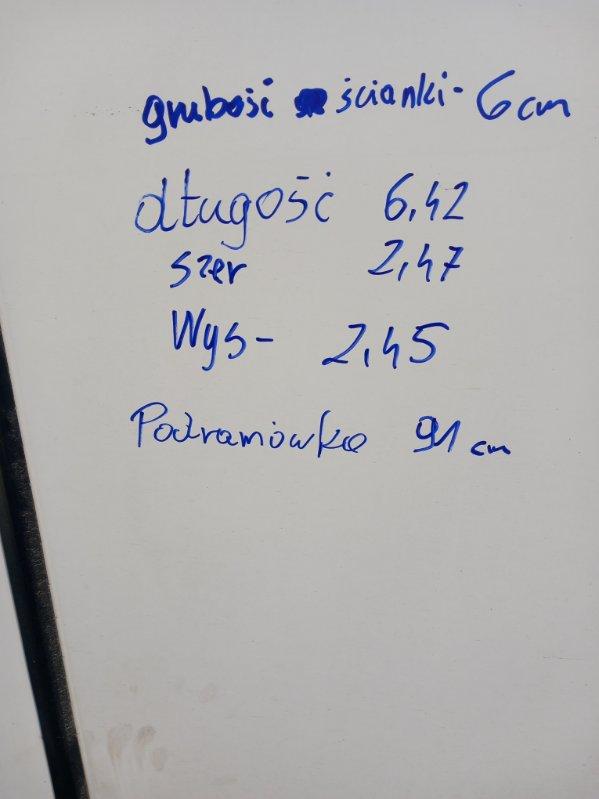 grubość ścianki - 6 cm
długość 6,42
szer 2,47
Wys - 2,45
Podramówka 91 cm